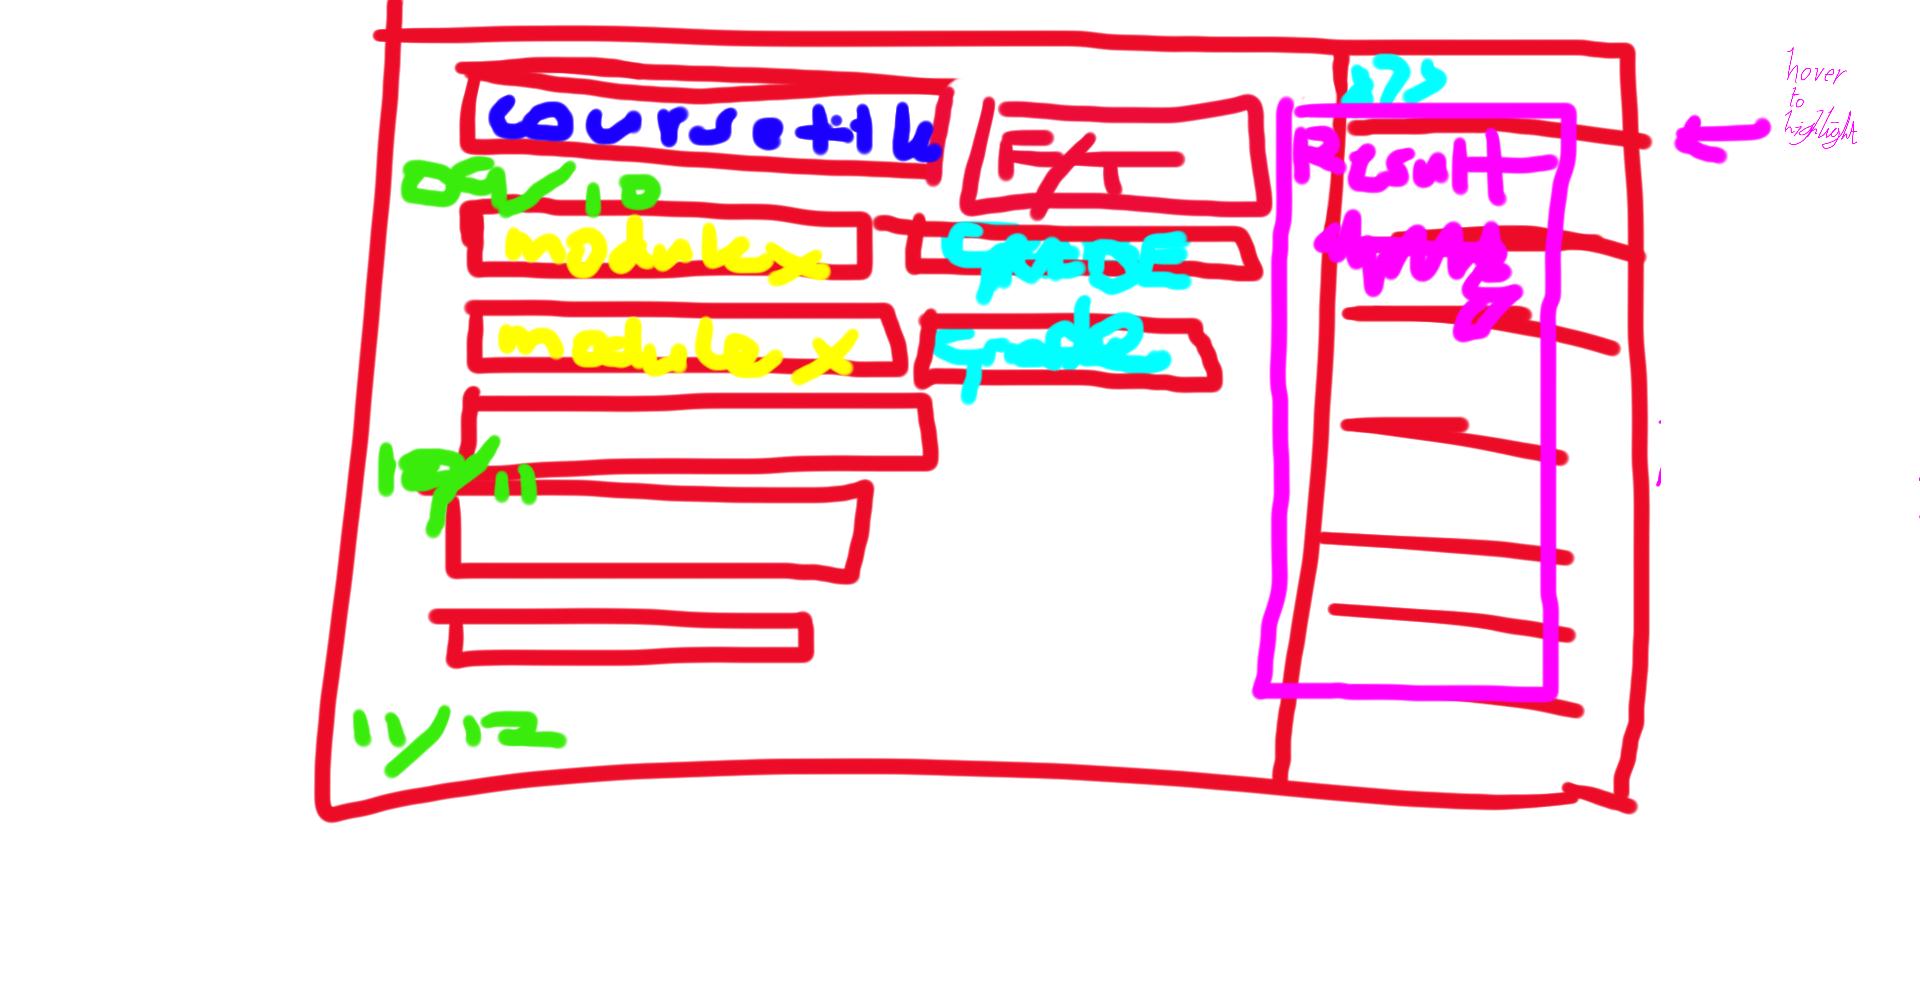 F/T
09/10
module x
GRADE
module x
Grade
10/11
11/12
Result
hover
to
highlight